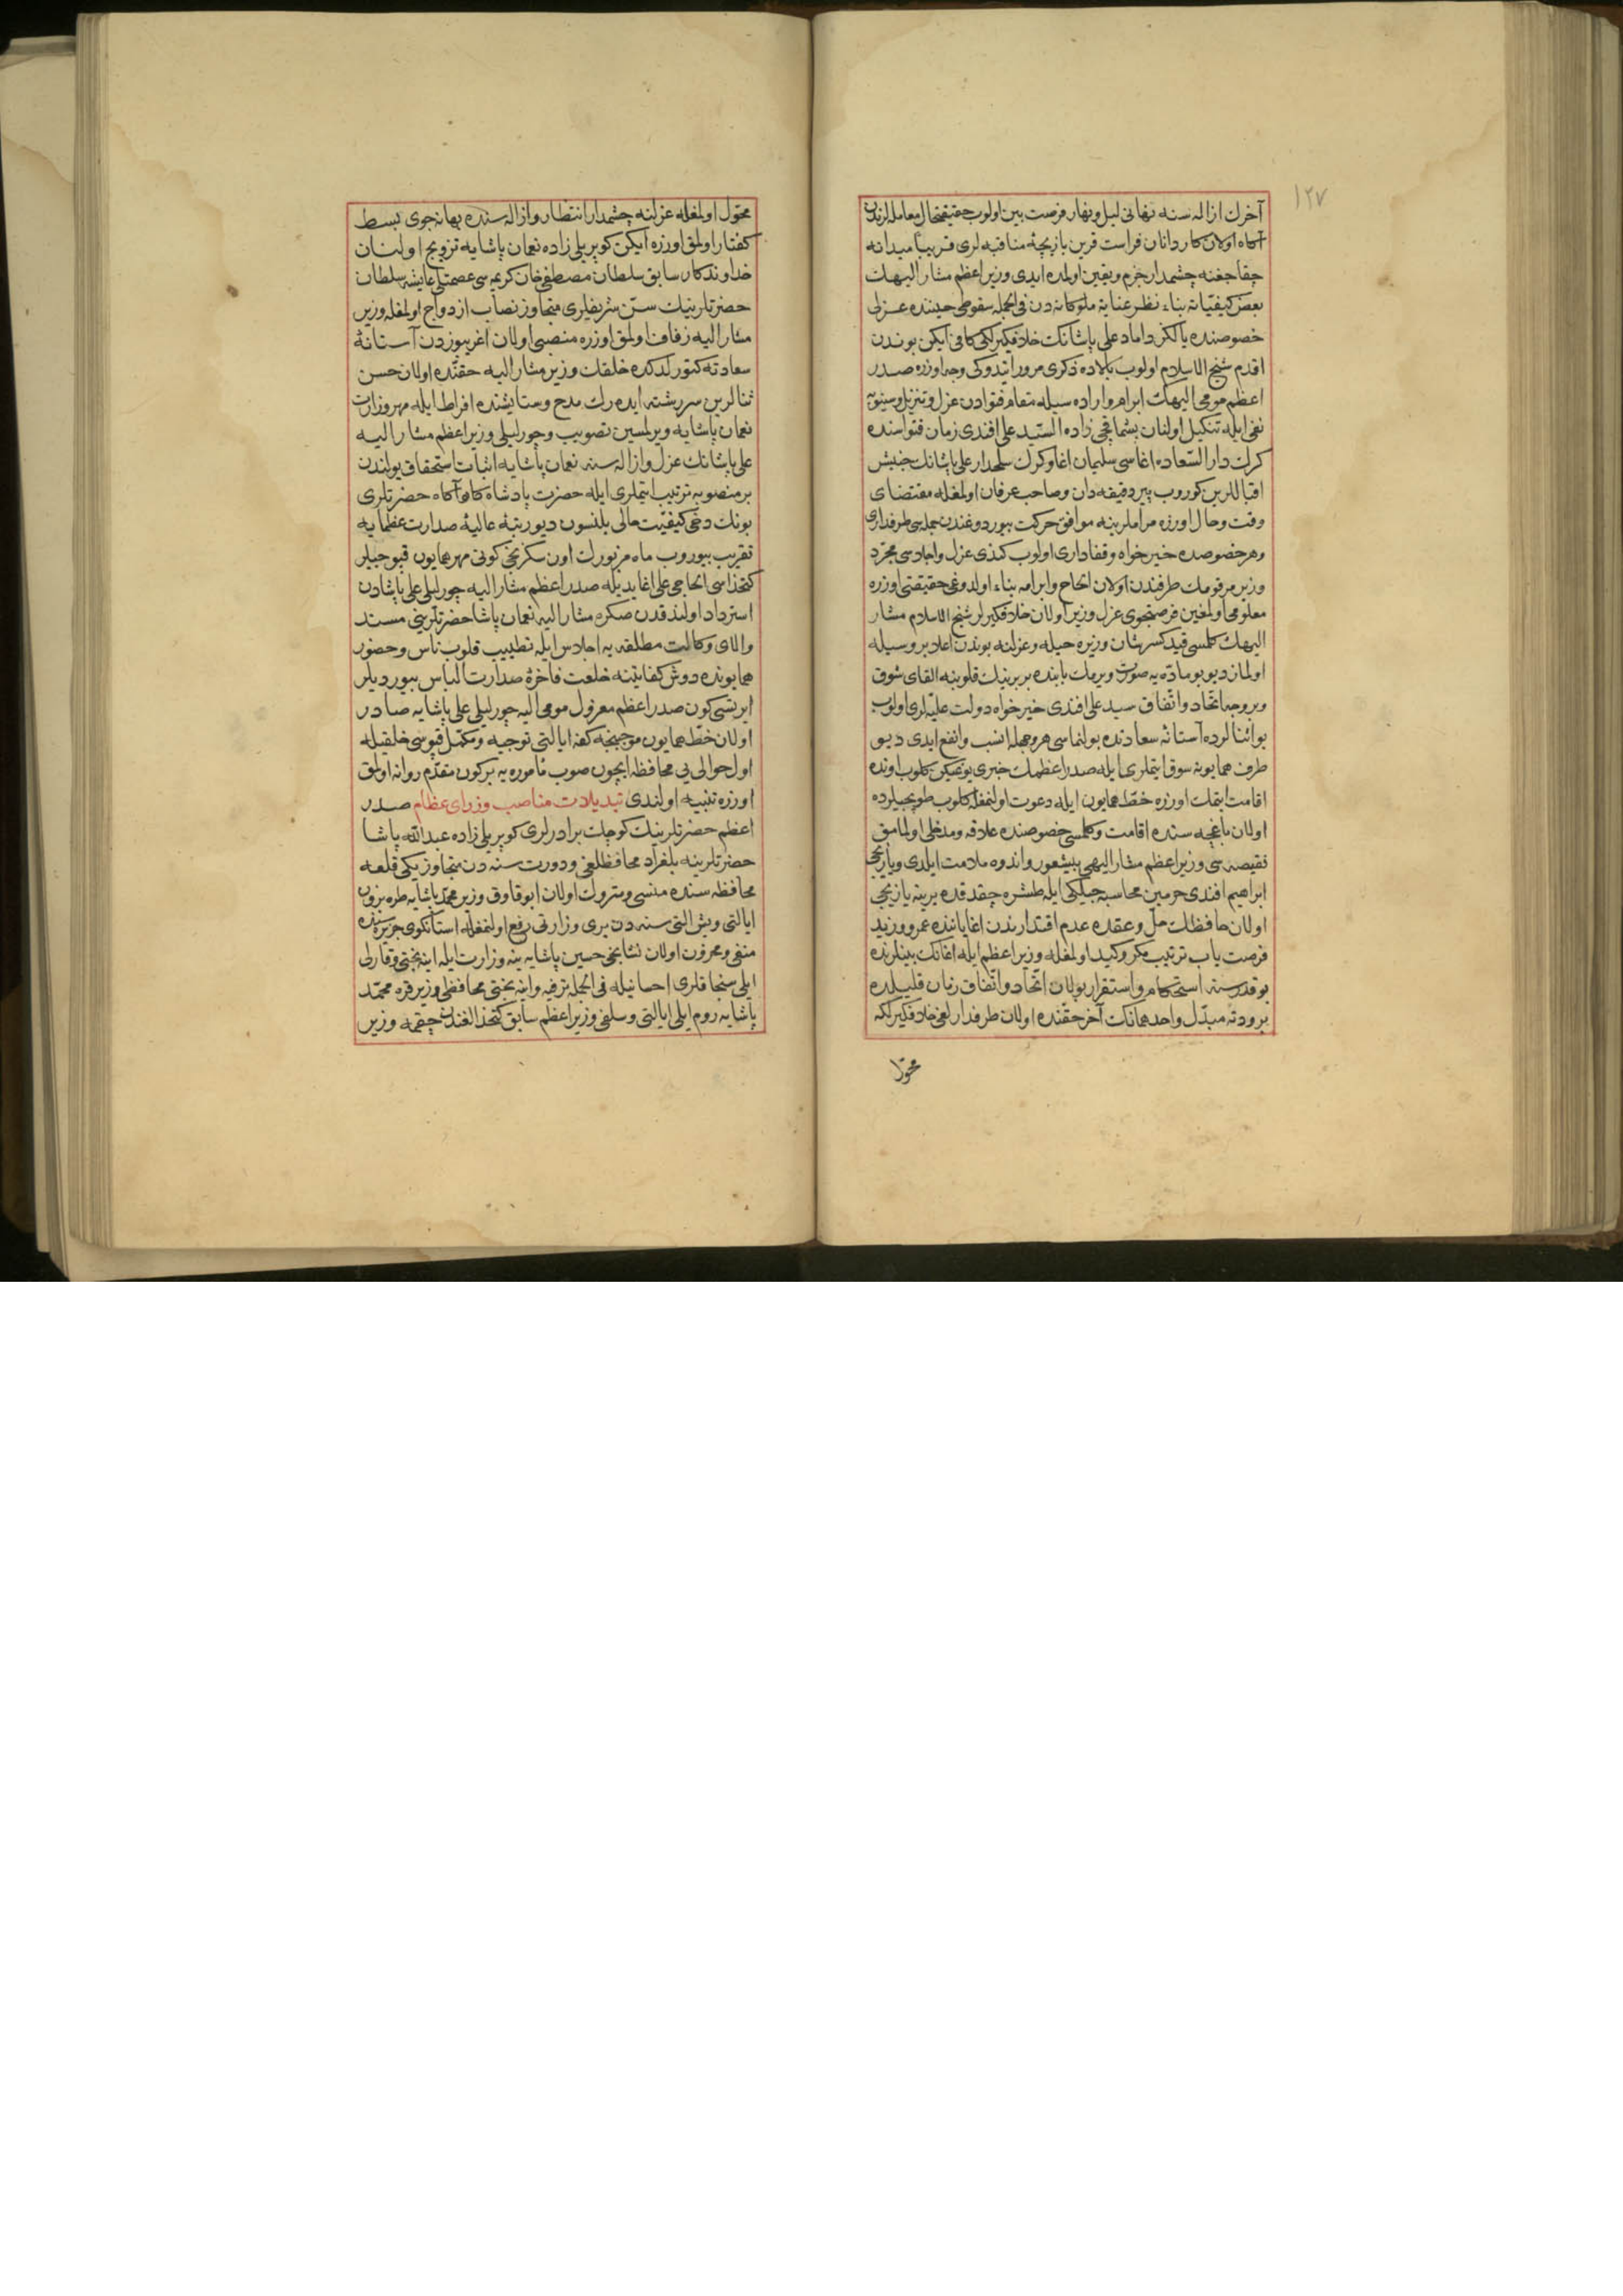 ١٢٧
آخرك ازاله سنه نهانی لیل و نهار فرصت بین اولوب حقیقتحال معامله لرندن
آكاه اولان كاردانان فراست قرین بازیچهٔ منافیه لری قریبا میدانه
چقاجغنه چشمدار جزم و یقین اولمده ایدی وزیر اعظم مشار الیهك
بعض كیفیاته بناء نظر عنایة ملوكانه دن فی الجمله سقوطی حیننده عزلی
خصوصنده یالكز داماد علی پاشانك خلافكیرلكی كافی ایكن بوندن
اقدم شیخ الاسلام اولوب بالاده ذكری مرور ایتدوكی وجه اوزره صدر
اعظم مومی الیهك ابرام و اراده سیله مقام فتوادن عزل و تنزیل و سینوبه
نفی ایله تنكیل اولنان پشماقچی زاده السید علی افندی زمان فتواسنده
كرك دار السعاده اغاسی سلیمان اغا و كرك سلحدار علی پاشانك جنبش
اقباللرین كوروب پیر دقیقه دان و صاحب عرفان اولمغله مقتضای
وقت و حال اوزره مراملرینه موافق حركت بیوردوغندن جمله سی طرفداری
و هر خصوصده خیر خواه و قفاداری اولوب كندی عزل و اجلاسی مجرد
وزیر مرقومك طرفندن اولان الحاح و ابرامه بناء اولدوغی حقیقتی اوزره
معلومی اولمغین فرصتجوی عزل وزیر اولان خلافكیرلر شیخ الاسلام مشار
الیهك كلمسی قید كسر شان وزیره حیله و عزلنه بوندن اعلا بر وسیله
اولماز دیو بو مادّه یه صورت ویرمك بابنده بربرینك قلوبنه القای شوق
و بر وجه اتحاد و اتفاق سید علی افندی خیر خواه دولت علیه لری اولوب
بو اثنالرده آستانهٔ سعادتده بولنماسی هر وجهله انسب و انفع ایدی دیو
طرف همایونه سوق ایتملری ایله صدر اعظمك خبری یوغیكن كلوب اونده
اقامت ایتمك اوزره خط همایون ایله دعوت اولنمغله كلوب طوپجیلرده
اولان باغچه سنده اقامت و كلمسی خصوصنده علاقه و مدخلی اولمامق
نقیصه سی وزیر اعظم مشار الیهی بیشعور و اندوه ملامت ایلدی و یازیجی
ابراهیم افندی حرمین محاسبه جیلكی ایله طشره چقدقده یرینه یازیجی
اولان حافظك حل و عقده عدم اقتدارندن اغایاننده عمرو و زید
فرصت یاب ترتیب مكر و كید اولمغله وزیر اعظم ایله اغانك بینلرنده
بو قدر سنه استحكام و استقرار بولان اتحاد و اتفاق زمان قلیلده
برودته مبدّل و احدهمانك آخر حقنده اولان طرفدارلغی خلافكیرلكه
محوّل
محوّل اولمغله عزلنه چشمدار انتظار و ازاله سنده بهانه جوی بسط
كفتار اولمق اوزره ایكن كوپریلی زاده نعمان پاشایه تزویج اولنان
خداوندكار سابق سلطان مصطفی خان كریمه سی عصمتلی عایشه سلطان
حضرتلرینك سنّ شریفلری متجاوز نصاب ازدواج اولمغله وزیر
مشار الیه زفاف اولمق اوزره منصبی اولان اغریبوزدن آستانهٔ
سعادته كتورلدكده خلقك وزیر مشار الیه حقنده اولان حسن
ثنالرین سررشته ایده رك مدح و ستایشنده افراط ایله مهر وزارت
نعمان پاشایه ویرلمسین تصویب و چورلیلی وزیر اعظم مشار الیه
علی پاشانك عزل و ازاله سنه نعمان پاشایه اثبات استحقاق یولندن
بر منصوبه ترتیب ایتملری ایله حضرت پادشاه كار آكاه حضرتلری
بونك دخی كیفیت حالی بلنسون دیو رتبهٔ عالیهٔ صدارت عظمایه
تقریب بیوروب ماه مزبورك اون سكزنجی كونی مهر همایون قپوجیلر
كتخداسی الحاجی علی اغا یدیله صدر اعظم مشار الیه چورلیلی علی پاشادن
استرداد اولندقدن صكره مشار الیه نعمان پاشا حضرتلرینی مسند
والای وكالت مطلقه یه اجلاس ایله تطییب قلوب ناس و حضور
همایونده دوش كفایتنه خلعت فاخرهٔ صدارت الباس بیوردیلر
ایرتسی كون صدر اعظم معزول مومی الیه چورلیلی علی پاشایه صادر
اولان خط همایون موجبنجه كفه ایالتی توجیه و مكمل قپوسی خلقیله
اول حوالی یی محافظه ایچون صوب مأموره یه بر كون مقدّم روانه اولمق
اوزره تنبیه اولندی تبدیلات مناصب وزرای عظام صدر
اعظم حضرتلرینك كوچك برادرلری كوپریلی زاده عبدالله پاشا
حضرتلرینه بلغراد محافظلغی و درت سنه دن متجاوز یكی قلعه
محافظه سنده منسی و متروك اولان ابو قاوق وزیر محمد پاشایه طره بزون
ایالتی و بش التی سنه دن بری وزارتی رفع اولنمغله استانكوی جزیره سنده
منفی و محزون اولان نشانجی حسین پاشایه ینه وزارت ایله اینه بختی و قارلی
ایلی سنجاقلری احسانیله فی الجمله ترفیه و اینه بختی محافظی وزیر قره محمد
پاشایه روم ایلی ایالتی و سلفی وزیر اعظم سابق كتخدالغندن چقمه وزیر